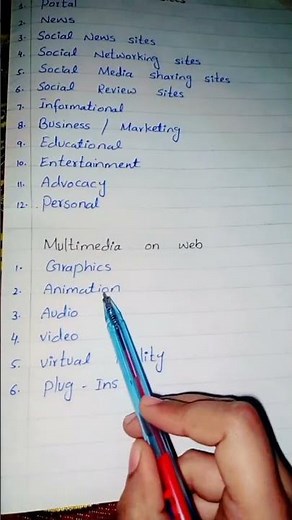 1. Portal
2. News
3. Social News sites
4. Social Networking sites
5. Social Media sharing sites
6. Social Review sites
7. Informational
8. Business / Marketing
9. Educational
10. Entertainment
11. Advocacy
12. Personal
Multimedia on web
1. Graphics
2. Animation
3. Audio
4. video
5. virtual lity
6. Plug - Ins